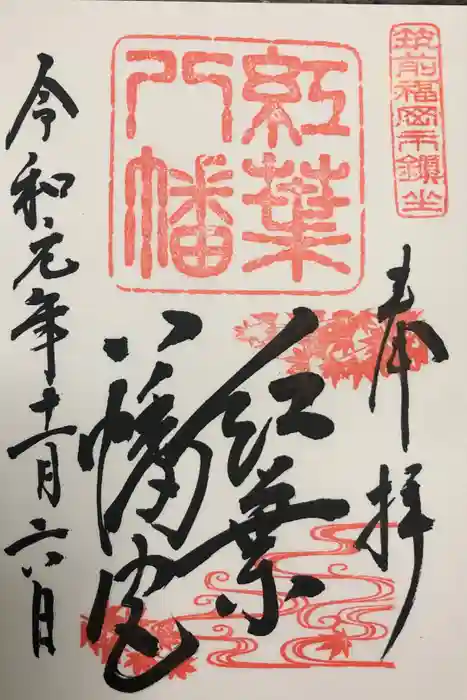 筑前福岡市鎮坐
奉拝
紅葉
八幡
紅葉
八幡宮
令和元年十一月六日